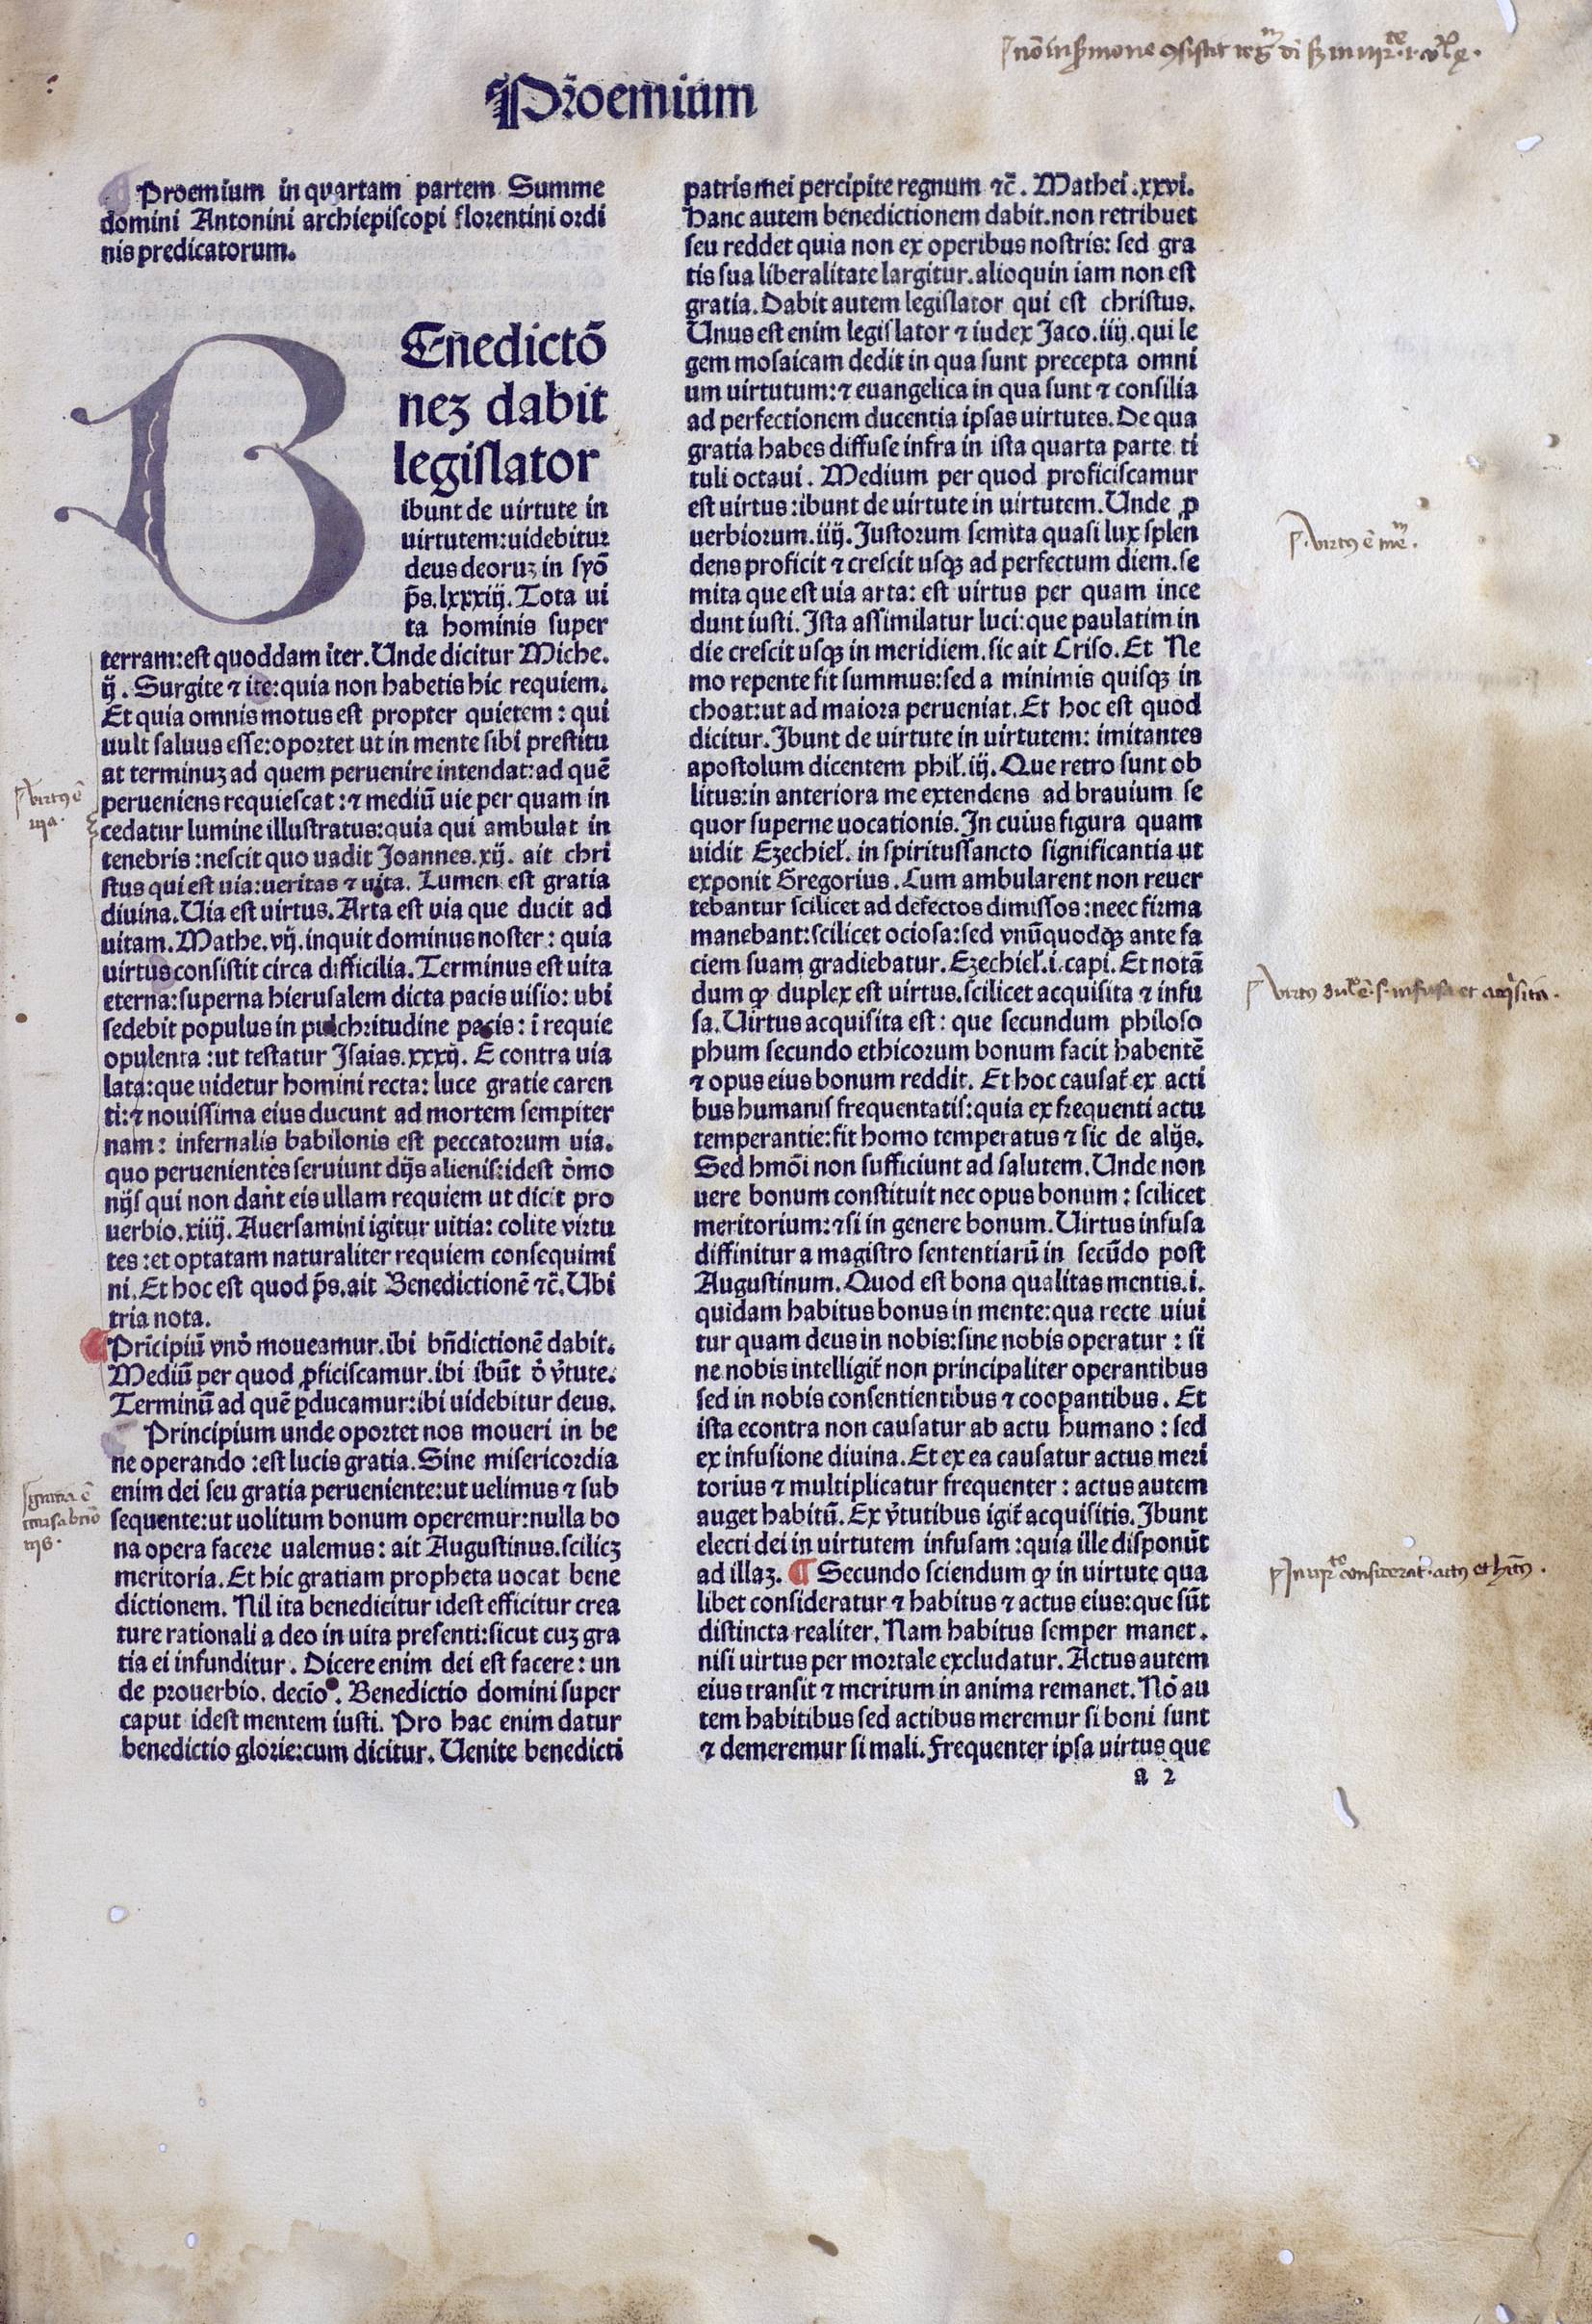 Prohemium
Proemium in quartam partem Summe
domini Antonini archiepiscopi florentini ordi
nis predicatorum.
BEnedictō
nez dabit
legislator
ibunt de uirtute in
uirtutem:uidebitur
deus deoruz in syō
p̄s.lxxxiij. Tota ui
ta hominis super
terram:est quoddam iter. Unde dicitur Miche.
ij. Surgite ⁊ ite:quia non habetis hic requiem.
Et quia omnis motus est propter quietem: qui
uult saluus esse:oportet ut in mente sibi prestitu
at terminuz ad quem peruenire intendat:ad quē
perueniens requiescat:⁊ mediū uie per quam in
cedatur lumine illustratus:quia qui ambulat in
tenebris:nescit quo uadit Joannes.xij. ait chri
stus qui est uia:ueritas ⁊ uita. Lumen est gratia
diuina. Uia est uirtus. Arta est uia que ducit ad
uitam. Mathe.vij. inquit dominus noster: quia
uirtus consistit circa difficilia. Terminus est uita
eterna:superna hierusalem dicta pacis uisio: ubi
sedebit populus in pulchritudine pacis: ī requie
opulenta:ut testatur Isaias.xxxij. E contra uia
lata:que uidetur homini recta: luce gratie caren
ti:⁊ nouissima eius ducunt ad mortem sempiter
nam: infernalis babilonis est peccatorum uia.
quo peruenientes seruiunt dijs alienis:idest dōmo
nijs qui non dant eis ullam requiem ut dicit pro
uerbio.xiiij. Auersamini igitur uitia: colite virtu
tes:et optatam naturaliter requiem consequimi
ni. Et hoc est quod p̄s. ait Benedictionē ⁊c̄. Ubi
tria nota.
Pr̄icipiū vnō moueamur.ibi bn̄dictionē dabit.
Mediū per quod ꝓficiscamur.ibi ibūt ō v̄tute.
Terminū ad quē ꝑducamur:ibi uidebitur deus.
Principium unde oportet nos moueri in be
ne operando:est lucis gratia. Sine misericordia
enim dei seu gratia perueniente:ut uelimus ⁊ sub
sequente:ut uolitum bonum operemur:nulla bo
na opera facere ualemus: ait Augustinus.scilicz
meritoria. Et hic gratiam propheta uocat bene
dictionem. Nil ita benedicitur idest efficitur crea
ture rationali a deo in uita presenti:sicut cuz gra
tia ei infunditur. Dicere enim dei est facere: un
de prouerbio. decio. Benedictio domini super
caput idest mentem iusti. Pro hac enim datur
benedictio glorie:cum dicitur. Uenite benedicti
patris mei percipite regnum ⁊c̄. Mathei.xxvi.
Hanc autem benedictionem dabit.non retribuet
seu reddet quia non ex operibus nostris: sed gra
tis sua liberalitate largitur.alioquin iam non est
gratia. Dabit autem legislator qui est christus.
Unus est enim legislator ⁊ iudex Jaco.iiij. qui le
gem mosaicam dedit in qua sunt precepta omni
um uirtutum:⁊ euangelica in qua sunt ⁊ consilia
ad perfectionem ducentia ipsas uirtutes. De qua
gratia habes diffuse infra in ista quarta parte ti
tuli octaui. Medium per quod proficiscamur
est uirtus:ibunt de uirtute in uirtutem. Unde ꝓ
uerbiorum.iiij. Justorum semita quasi lux splen
dens proficit ⁊ crescit usqꝫ ad perfectum diem.se
mita que est uia arta: est uirtus per quam ince
dunt iusti. Ista assimilatur luci:que paulatim in
die crescit usqꝫ in meridiem.sic ait Criso. Et Ne
mo repente fit summus:sed a minimis quisqꝫ in
choat:ut ad maiora perueniat. Et hoc est quod
dicitur. Ibunt de uirtute in uirtutem: imitantes
apostolum dicentem phil̄.iij. Que retro sunt ob
litus:in anteriora me extendens ad brauium se
quor superne uocationis. In cuius figura quam
uidit Ezechiel̄. in spiritussancto significantia ut
exponit Gregorius. Cum ambularent non reuer
tebantur scilicet ad defectos dimissos:neec firma
manebant:scilicet ociosa:sed vnūquodqꝫ ante fa
ciem suam gradiebatur. Ezechiel̄.i.capi. Et notā
dum ꝙ duplex est uirtus.scilicet acquisita ⁊ infu
sa. Uirtus acquisita est: que secundum philoso
phum secundo ethicorum bonum facit habentē
⁊ opus eius bonum reddit. Et hoc causat̄ ex acti
bus humanis frequentatis:quia ex frequenti actu
temperantie:fit homo temperatus ⁊ sic de alijs.
Sed hmōi non sufficiunt ad salutem. Unde non
uere bonum constituit nec opus bonum: scilicet
meritorium:⁊si in genere bonum. Uirtus infusa
diffinitur a magistro sententiarū in secūdo post
Augustinum. Quod est bona qualitas mentis.i.
quidam habitus bonus in mente:qua recte uiui
tur quam deus in nobis:sine nobis operatur: si
ne nobis intelligit̄ non principaliter operantibus
sed in nobis consentientibus ⁊ cooꝑantibus. Et
ista econtra non causatur ab actu humano: sed
ex infusione diuina. Et ex ea causatur actus meri
torius ⁊ multiplicatur frequenter: actus autem
auget habitū. Ex v̄tutibus igit̄ acquisitis. Ibunt
electi dei in uirtutem infusam:quia ille disponūt
ad illaz. ¶ Secundo sciendum ꝙ in uirtute qua
libet consideratur ⁊ habitus ⁊ actus eius:que sūt
distincta realiter. Nam habitus semper manet.
nisi uirtus per mortale excludatur. Actus autem
eius transit ⁊ meritum in anima remanet. Nō au
tem habitibus sed actibus meremur si boni sunt
⁊ demeremur si mali. Frequenter ipsa uirtus que
a 2
virtus ē
uia.
virtus ē me^m.
virtus dul^x ē.s.infusa et acq̇sita.